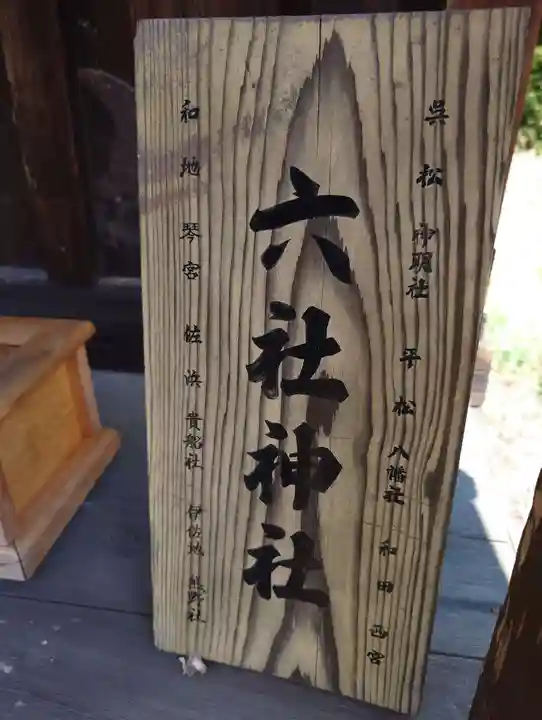 呉松 神明社 平松 八幡社 和田 西宮
六社神社
和地 琴宮 佐浜 貴船社 伊佐地 熊野社